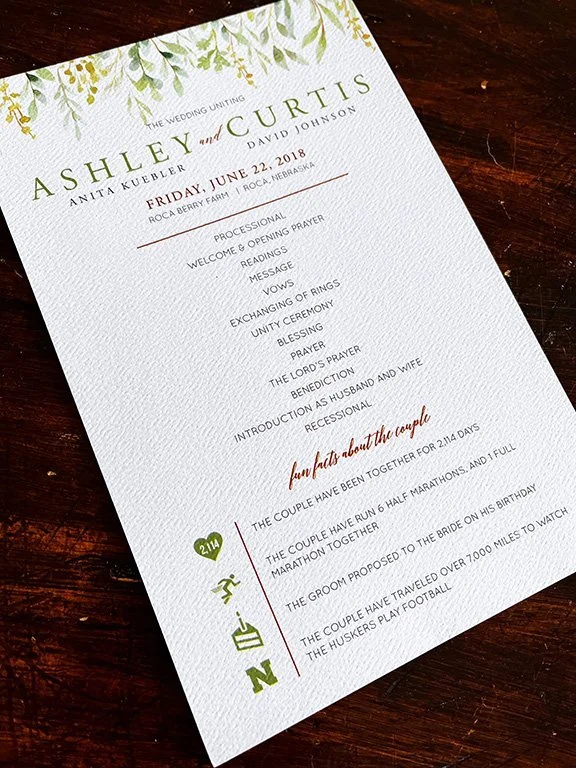 THE WEDDING UNITING
ASHLEY and CURTIS
ANITA KUEBLER DAVID JOHNSON
FRIDAY, JUNE 22, 2018
ROCA BERRY FARM | ROCA, NEBRASKA
PROCESSIONAL
WELCOME & OPENING PRAYER
READINGS
MESSAGE
VOWS
EXCHANGING OF RINGS
UNITY CEREMONY
BLESSING
PRAYER
THE LORD'S PRAYER
BENEDICTION
INTRODUCTION AS HUSBAND AND WIFE
RECESSIONAL
fun facts about the couple
2,114
THE COUPLE HAVE BEEN TOGETHER FOR 2,114 DAYS
THE COUPLE HAVE RUN 6 HALF MARATHONS, AND 1 FULL
MARATHON TOGETHER
THE GROOM PROPOSED TO THE BRIDE ON HIS BIRTHDAY
N
THE COUPLE HAVE TRAVELED OVER 7,000 MILES TO WATCH
THE HUSKERS PLAY FOOTBALL